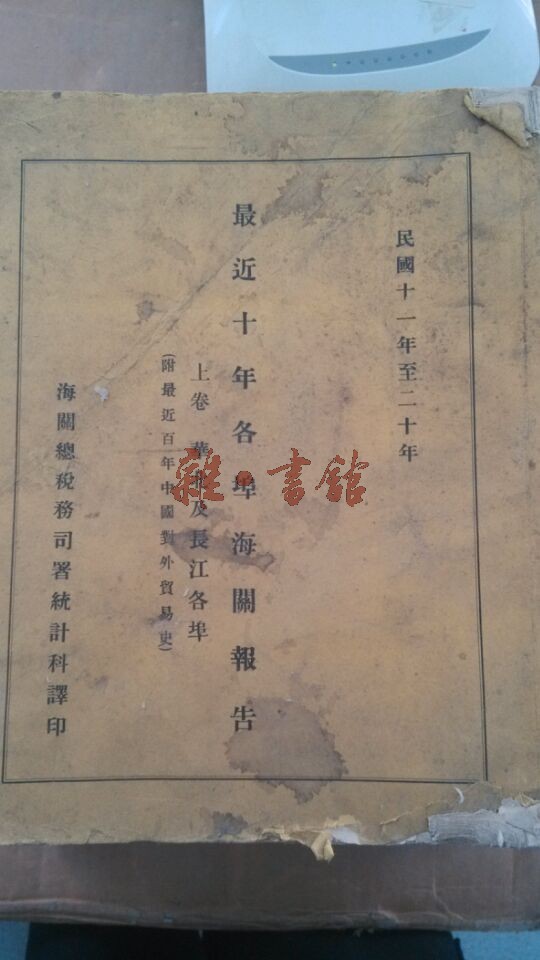 民國十一年至二十年
最近十年各埠海關報告
上卷 華北及長江各埠
(附最近百年中國對外貿易史)
海關總稅務司署統計科譯印
雜·書館